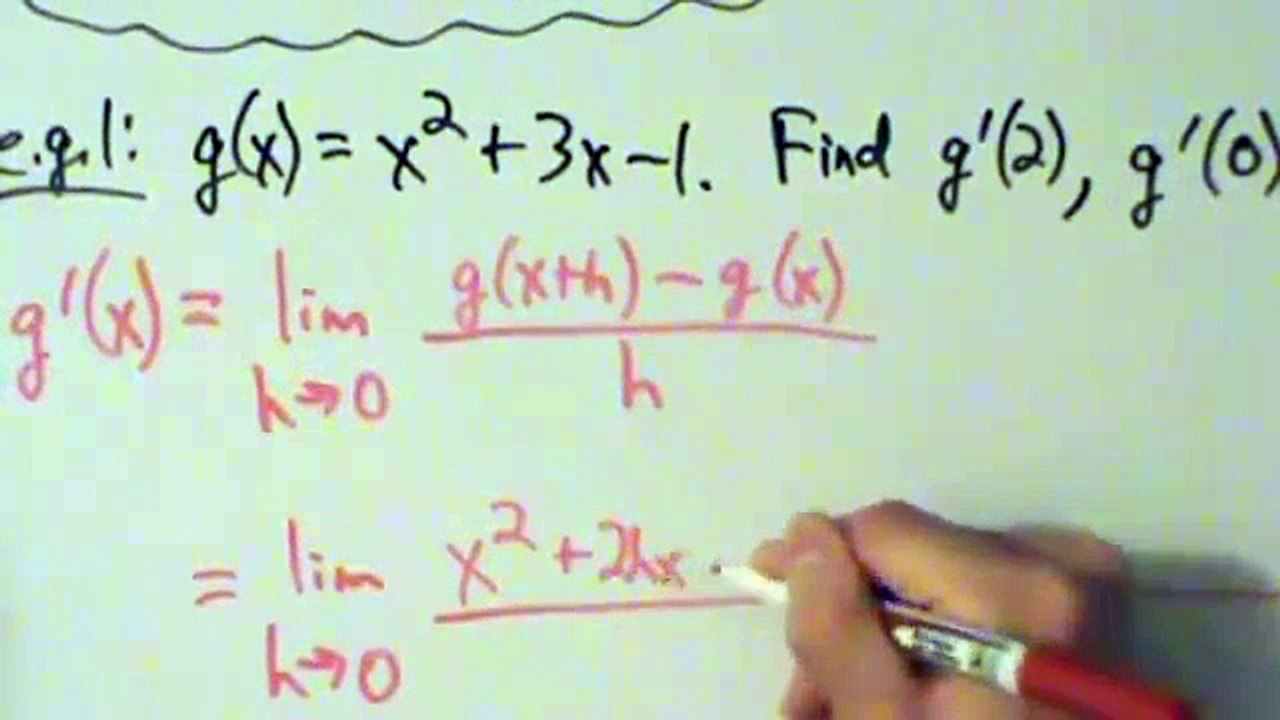 e.g.1: g(x) = x² + 3x - 1. Find g'(2), g'(0)
g'(x) = lim g(x+h) - g(x)
h→0 h
= lim x² + 2hx
h→0